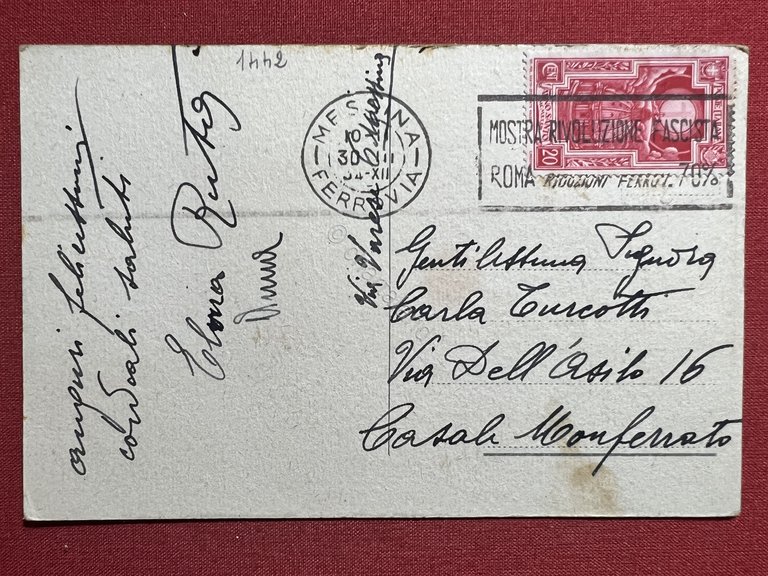 1442
auguri felicissimi
cordiali saluti
Elvira
Via Varese
MESSINA
FERROVIA
10
30
34-XII
MOSTRA RIVOLUZIONE FASCISTA
ROMA RIDUZIONI FERROV. 70%
20
Gentilissima Signora
Carla Turcotti
Via Dell'Asilo 16
Casale Monferrato